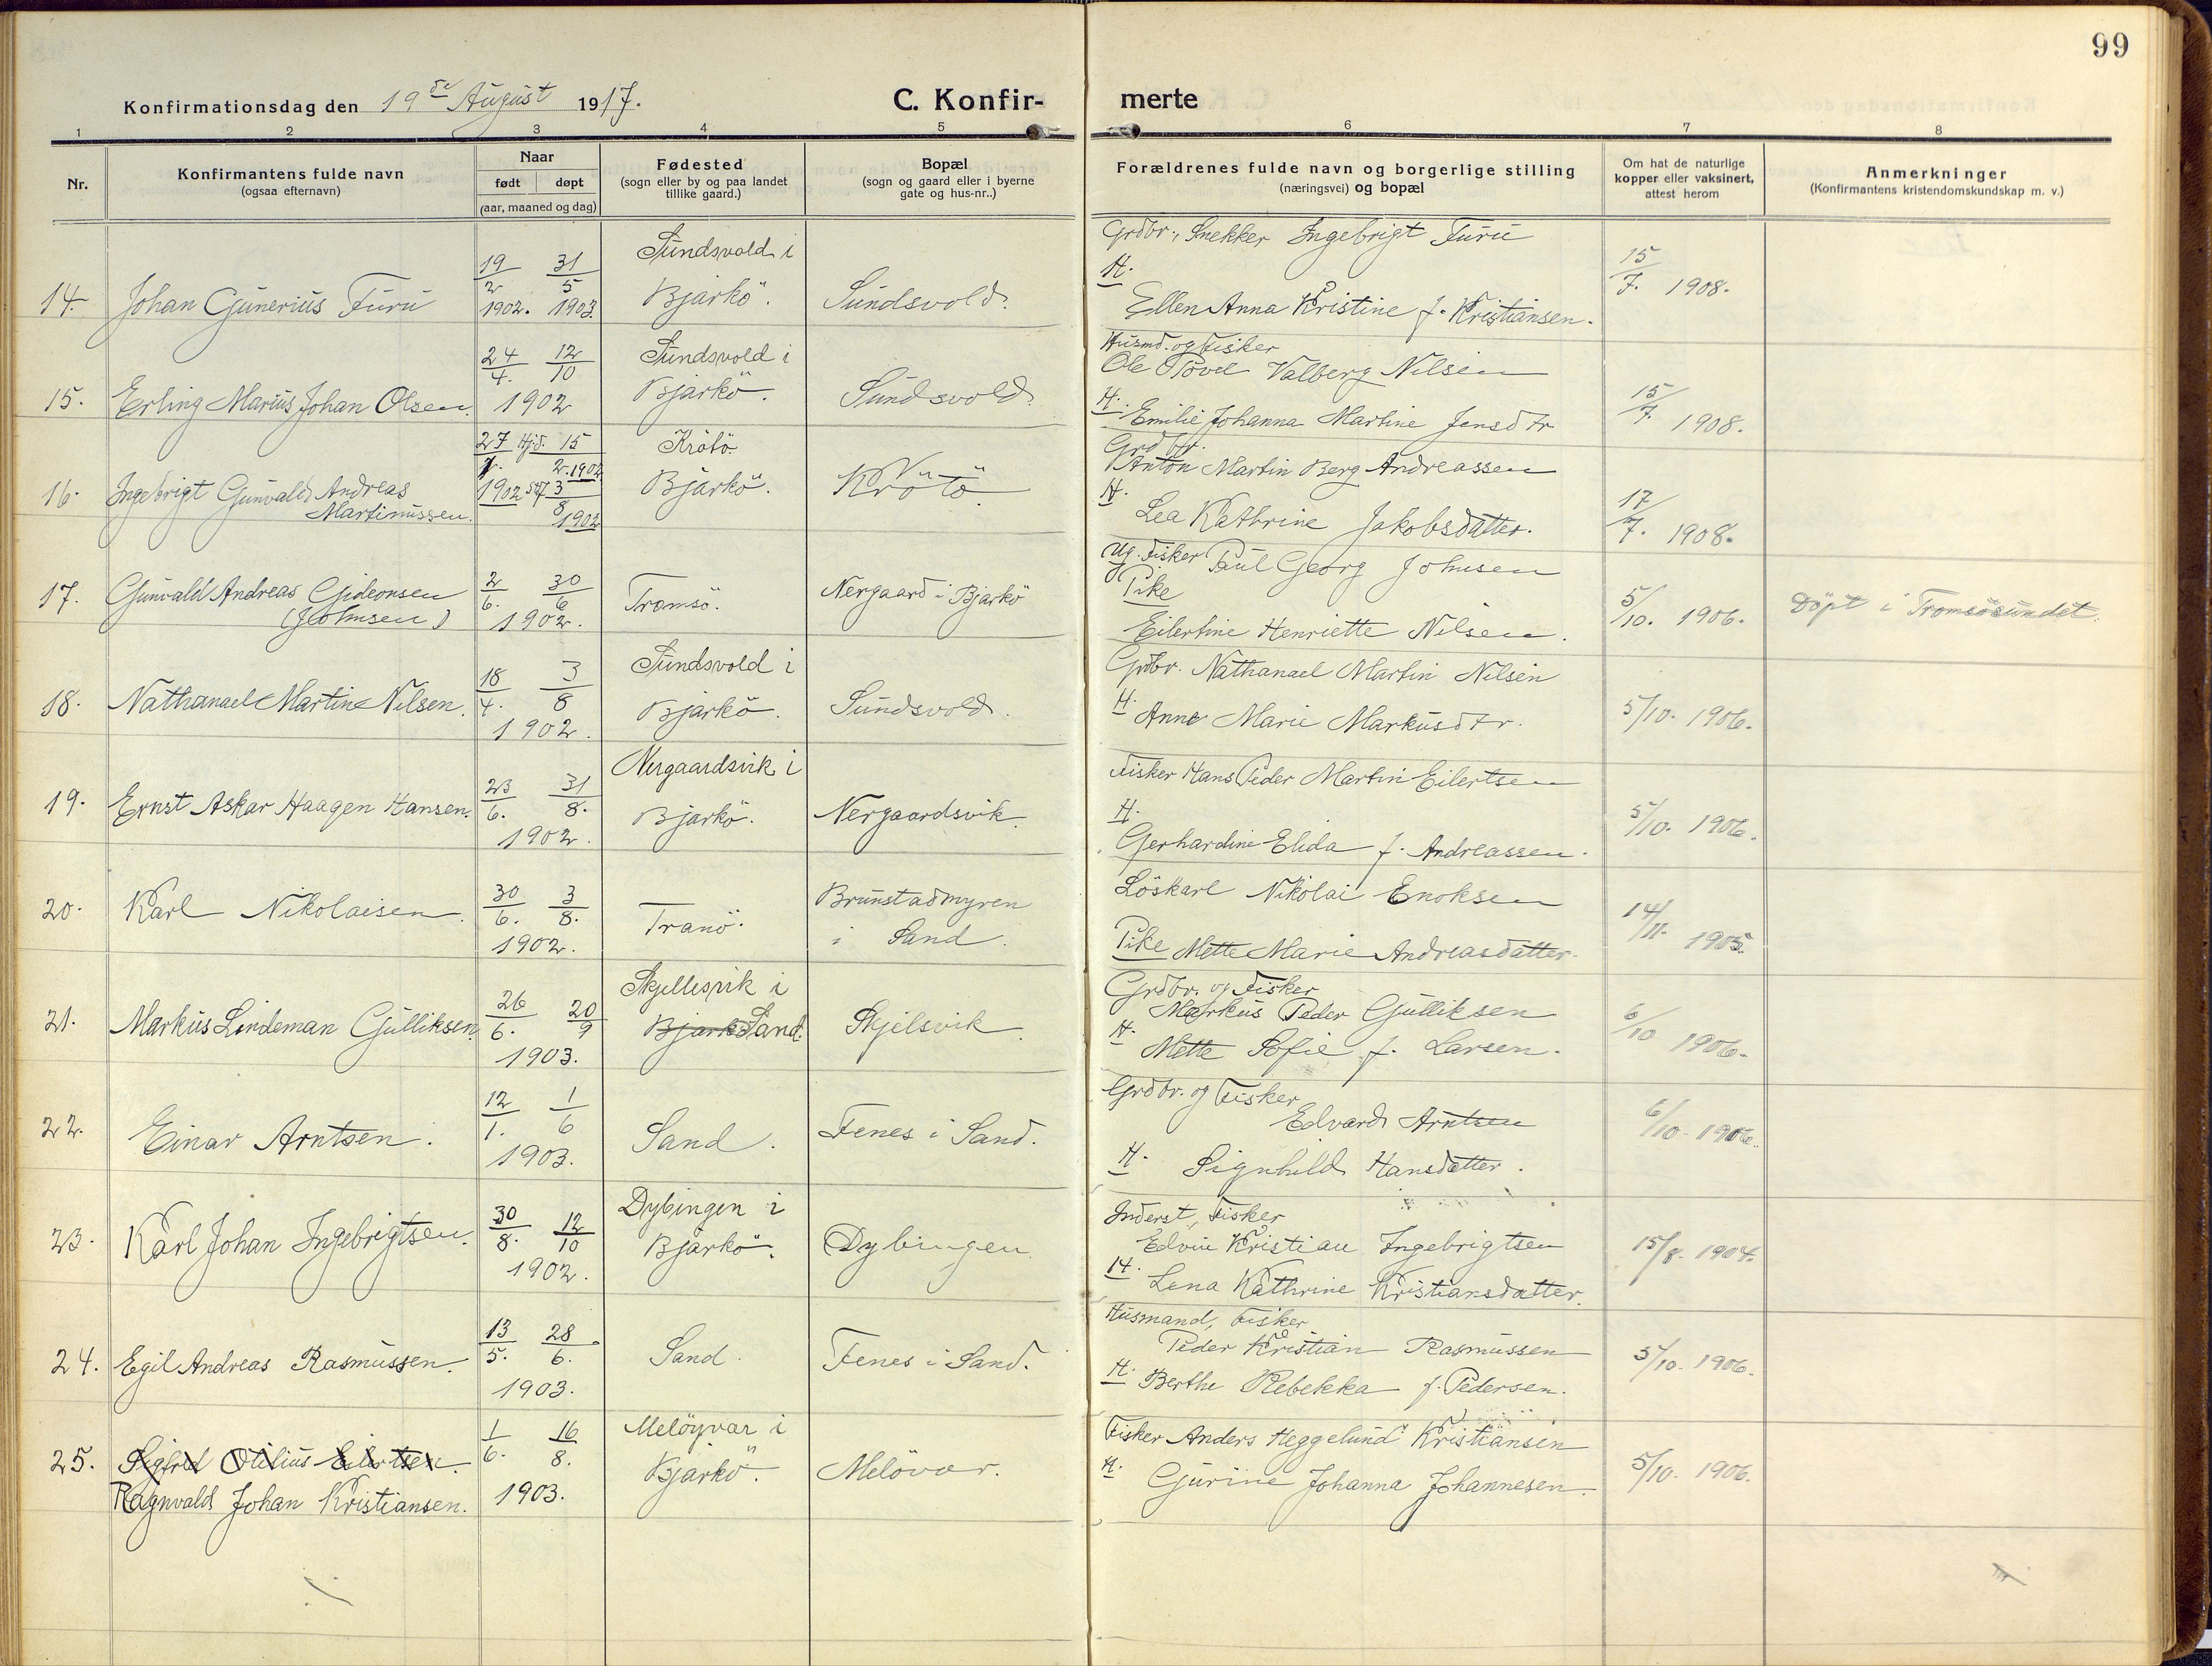 99
Konfirmationsdag den 19de August 1917. C. Konfir- merte
1 2 3 4 5 6 7 8
Nr.
Konfirmantens fulde navn
(ogsaa efternavn)
Naar
født døpt
(aar, maaned og dag)
Fødested
(sogn eller by og paa landet
tillike gaard.)
Bopæl
(sogn og gaard eller i byerne
gate og hus-nr..)
Forældrenes fulde navn og borgerlige stilling
(næringsvei) og bopæl
Om hat de naturlige
kopper eller vaksinert,
attest herom
Anmerkninger
(Konfirmantens kristendomskundskap m. v.)
14. Johan Gunerius Furu
19/2 1902. 31/5 1903.
Sundsvold i
Bjarkö.
Sundsvold.
Grdbr., Snekker Ingebrigt Furu
H.
Ellen Anna Kristine f. Kristiansen.
15/7. 1908.
15. Erling Marius Johan Olsen.
24/4. 12/10
1902
Sundsvold i
Bjarkö.
Sundsvold.
Husmd. og Fisker
Ole Povel Valberg Nilsen
H. Emilie Johanna Martine Jensdtr
15/7. 1908.
16. Ingebrigt Gunvald Andreas
Martinussen.
27/1. 1902 Hjd. 15/2. 1902
3/8 1902
Krötö
Bjarkö.
Krötö
Grdbr.
Anton Martin Berg Andreassen
H.
Lea Kathrine Jakobsdatter.
17/7. 1908.
17. Gunvald Andreas Gideonsen
(Johnsen)
2/6. 30/6
1902.
Tromsö.
Nergaard i Bjarkö
Ug. Fisker Paul Georg Johnsen
Pike
Eilertine Henriette Nilsen.
5/10. 1906.
Döpt i Tromsösundet.
18. Nathanael Martin Nilsen.
18/4. 3/8
1902.
Sundsvold i
Bjarkö.
Sundsvold.
Grdbr. Nathanael Martin Nilsen
H. Anne Marie Markusdtr.
5/10. 1906.
19. Ernst Askar Haagen Hansen.
23/6. 31/8.
1902.
Nergaardsvik i
Bjarkö.
Nergaardsvik.
Fisker Hans Peder Martin Eilertsen
H.
Gerhardine Elida f. Andreassen.
5/10. 1906.
20. Karl Nikolaisen.
30/6. 3/8.
1902.
Tranö.
Brunstadmyren
i Sand.
Löskarl Nikolai Enoksen
Pike Mette Marie Andreasdatter.
14/11. 1905.
21. Markus Lindeman Gulliksen.
26/6. 20/9
1903.
Skjellesvik i
Bjarkö Sand.
Skjelsvik.
Grdbr. og Fisker
Markus Peder Gulliksen
H. Mette Sofie f. Larsen.
6/10 1906.
22. Einar Arntsen.
12/1. 1/6
1903.
Sand.
Fenes i Sand.
Grdbr. og Fisker
Edvard Arntsen
H. Signhild Hansdatter.
6/10. 1906.
23. Karl Johan Ingebrigtsen.
30/8. 12/10
1902.
Dybingen i
Bjarkö.
Dybingen.
Inderst, Fisker
Edvin Kristian Ingebrigtsen
H. Lena Kathrine Kristiansdatter.
15/8. 1904.
24. Egil Andreas Rasmussen.
13/5. 28/6.
1903.
Sand.
Fenes i Sand.
Husmand, Fisker
Peder Kristian Rasmussen
H. Berthe Rebekka f. Pedersen.
5/10. 1906.
25. Sigfred Otilius Eilertsen.
Ragnvald Johan Kristiansen.
1/6. 16/8.
1903.
Melöyvar i
Bjarkö.
Melövar.
Fisker Anders Heggelund Kristiansen
H. Gurine Johanna Johannesen.
5/10. 1906.